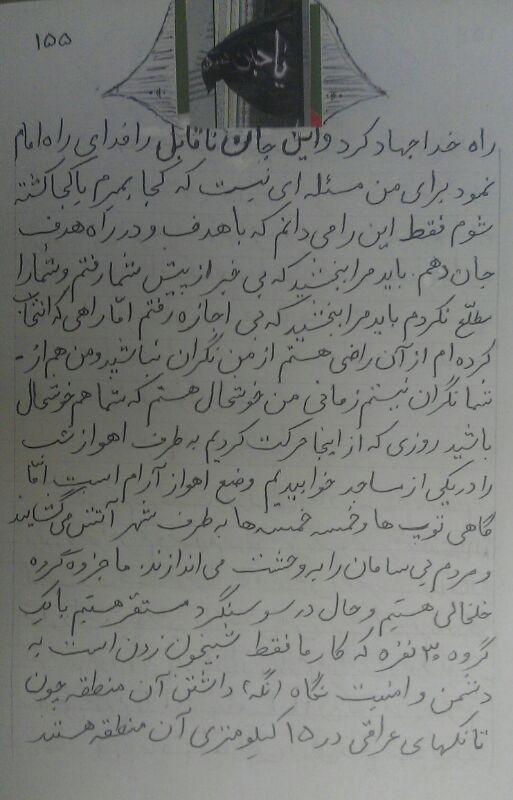 ۱۵۵
یا
راه خدا جهاد کرد و این جان ناقابل را فدای راه امام
نمود برای من مسئله ای نیست که کجا بمیرم یا کجا کشته
شوم فقط این را می دانم که با هدف و در راه هدف
جان دهم. باید مرا ببخشید که بی خبر از پیش شما رفتم و شما را
مطلع نکردم باید مرا ببخشید که بی اجازه رفتم امّا راهی که انتخاب
کرده ام از آن راضی هستم از من نگران نباشید و من هم از -
شما نگران نیستم زمانی من خوشحال هستم که شما هم خوشحال
باشید روزی که از اینجا حرکت کردیم به طرف اهواز شب
را در یکی از مساجد خوابیدیم وضع اهواز آرام است امّا
گاهی توپ ها و خمسه خمسه ها به طرف شهر آتش می گشایند
و مردم بی سامان را به وحشت می اندازند. ما جزو گروه
خلخالی هستیم و حال در سوسنگرد مستقر هستیم با یک
گروه ۳۰ نفره که کار ما فقط شبیخون زدن است به
دشمن و امنیت نگاه (نگه) داشتن آن منطقه چون
تانکهای عراقی در ۱۵ کیلومتری آن منطقه هستند